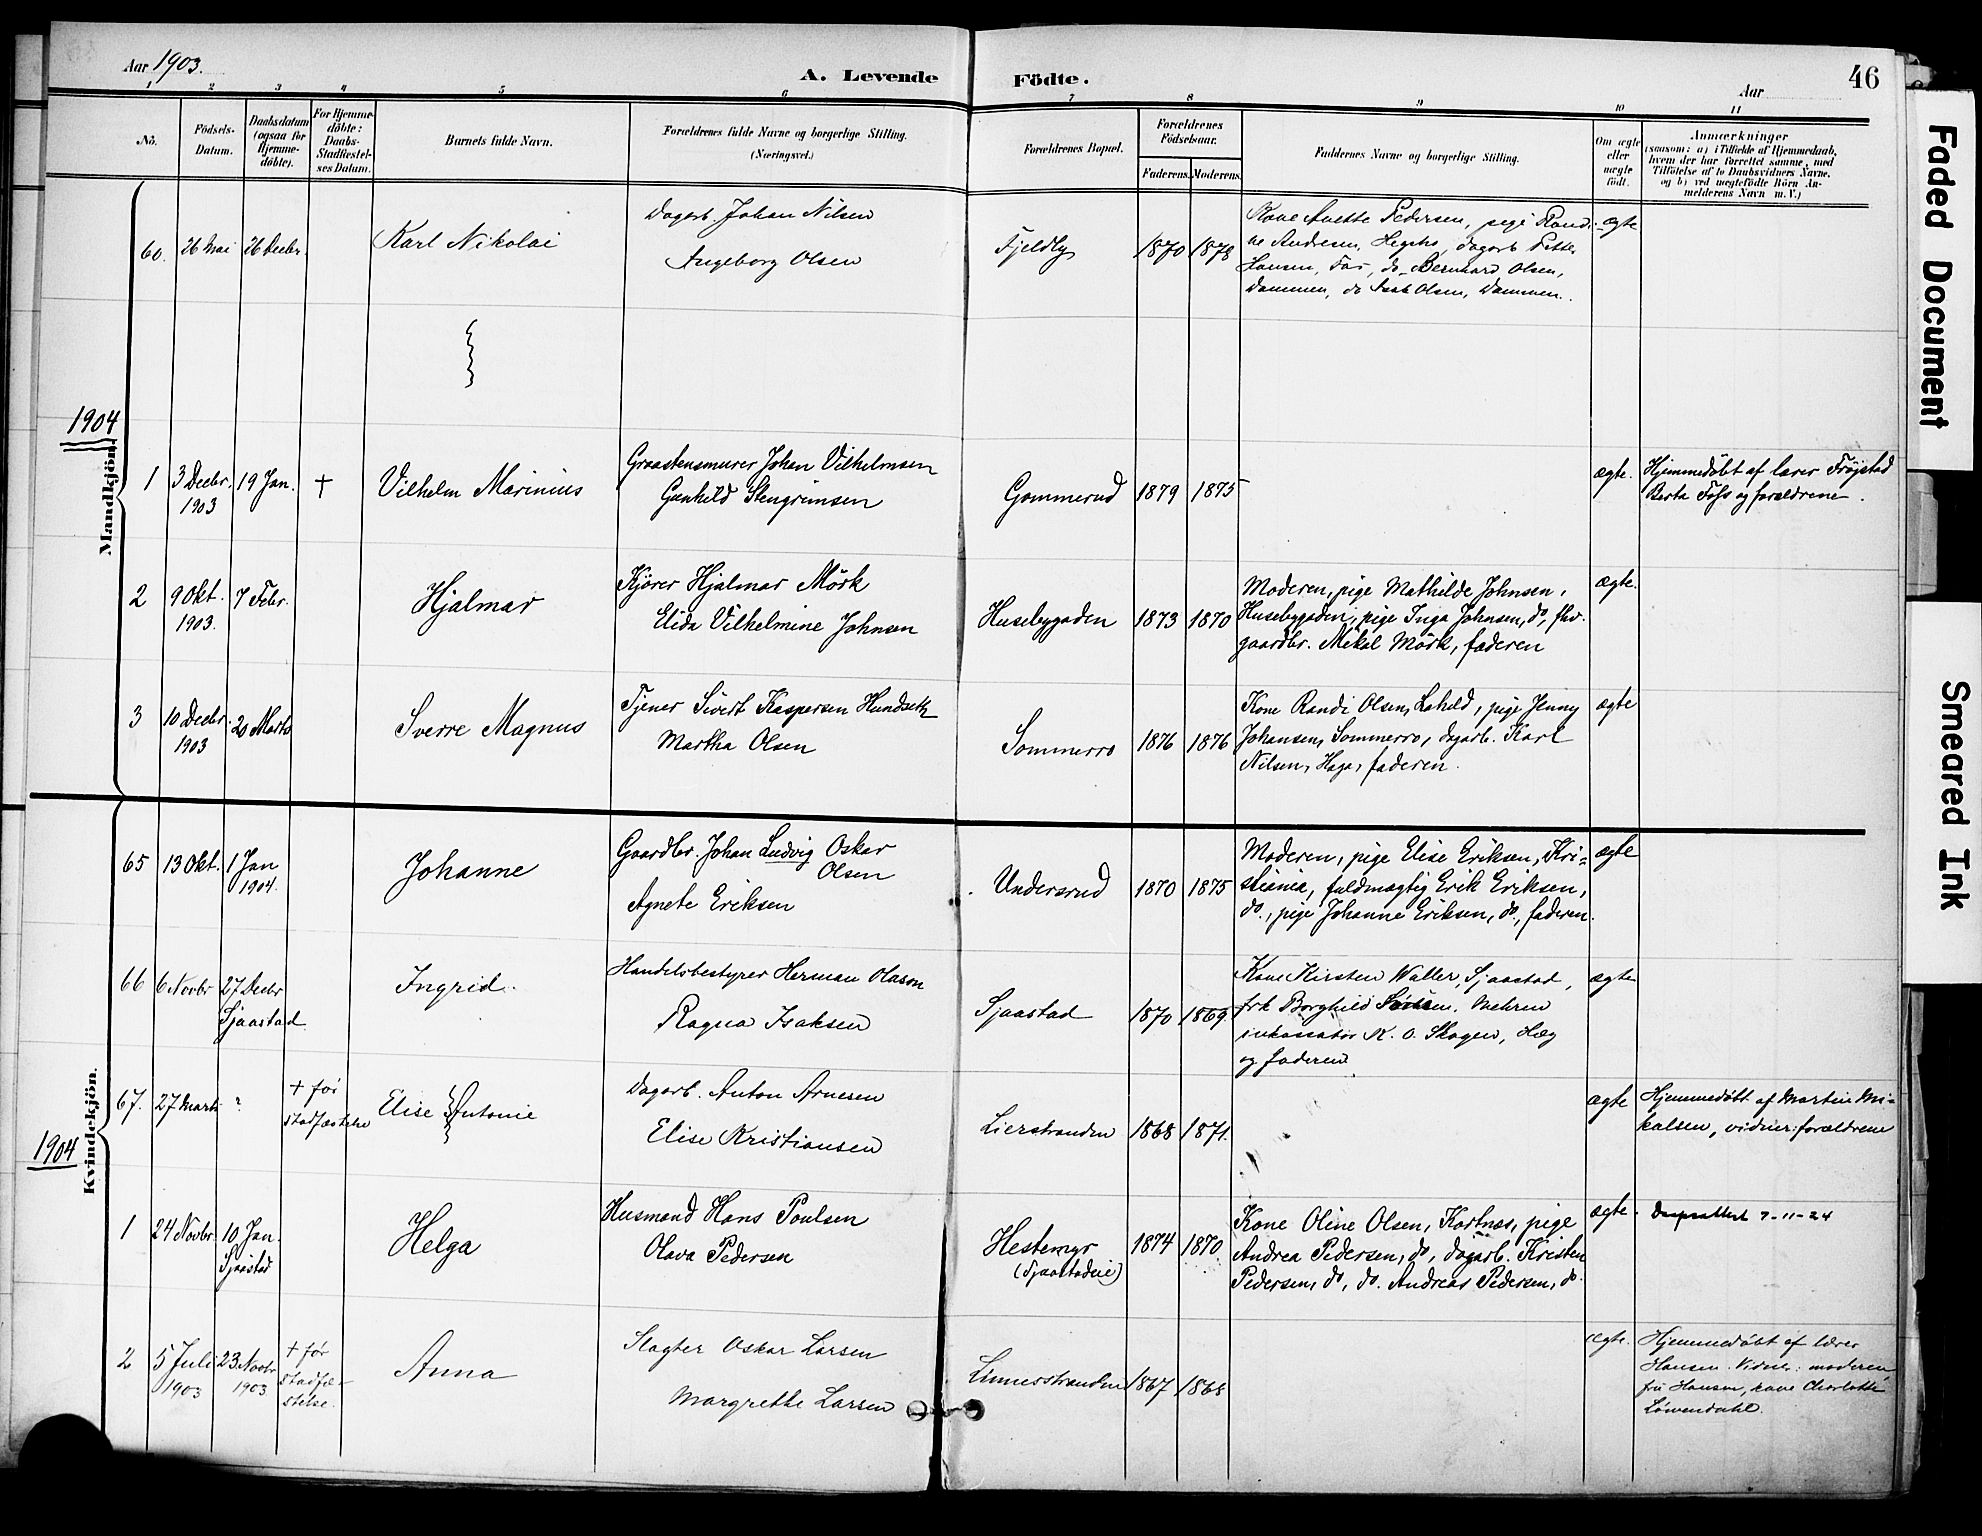 Aar 1903.
A. Levende Födte.
Aar
46
1 2 3 4 5 6 7 8 9 10 11
No.
Födsels-Datum.
Daabsdatum (ogsaa for Hjemme-döbte).
For Hjemme-döbte: Daabs-Stadfæstel-ses Datum.
Barnets fulde Navn.
Forældrenes fulde Navne og borgerlige Stilling. (Næringsvei.)
Forældrenes Bopæl.
Forældrenes Födselsaar.
Faderens. Moderens.
Faddernes Navne og borgerlige Stilling.
Om ægte eller uægte födt.
Anmærkninger
(saasom: a) i Tilfælde af Hjemmedaab,
hvem der har forrettet samme, med
Tilföielse af to Daabsvidners Navne.
og b) ved uægtefödte Börn An-
melderens Navn m. V.)
Mandkjön.
60. 26 Mai 26 Decbr. Karl Nikolai
Dagarb. Johan Nilsen
Angeborg Olsen
Fjeldly 1870 1878
Kone Anette Pedersen, pige Rand-
ne Andresen, dagarb.
Hansen, do Bernhard Olsen,
Dammen, do Olsen, Dammen.
ægte
1904
1 3 Decbr. 1903 19 Jan. + Vilhelm Marinius
Graastensmurer Johan Vilhelmsen
Gunhild Stengrimsen
Gommerud 1879 1875
ægte.
Hjemmedöbt af lærer Fröystad
Berta Foss og forældrene.
2 9 Okt. 1903. 7 Febr. Hjalmar
Kjörer Hjalmar Mörk
Elida Vilhelmine Johnsen
Husebygaden 1873 1870
Moderen, pige Mathilde Johnsen,
Husebygaden, pige Inga Johnsen, do, fhv.
gaardbr. Mikal Mörk, faderen
ægte.
3 10 Decbr. 1903 20 Marts Sverre Magnus
Tjener Sivert Kaspersen Hundseth
Martha Olsen
Sommerro 1876 1876
Kone Randi Olsen, pige Jenny
Johansen, Sommerro, dagarb. Karl
Nilsen, Haga, faderen.
ægte
Kvindekjön.
65 13 Okt. 1 Jan 1904. Johanne
Gaardbr. Johan Ludvig Oskar
Olsen
Agnete Eriksen
Undersrud 1870 1875
Moderen, pige Elise Eriksen, Kri-
stiania, fuldmægtig Erik Eriksen,
do., pige Johanne Eriksen, do., faderen.
ægte
66 6 Novbr 27 Decbr Sjaastad Ingrid.
Handelsbestyrer Herman Olason
Ragna Isaksen
Sjaastad 1870 1869.
Kone Kirsten Waller, Sjaastad,
frk Borghild Mehren
inkassator K. O. Skogen, Hæg
og faderen
ægte
67. 27 Marts ? + för stadfæstelse Elise Antonie
Dagarb. Anton Arnesen
Elise Kristiansen
Lierstranden 1868 1871.
ægte
Hjemmedöbt af Martin Mi-
kalsen, vidner: forældrene
1904
1 24 Novbr. 10 Jan. Sjaastad Helga
Husmand Hans Poulsen
Olava Pedersen
Hestemyr (Sjaastadeie) 1874 1870.
Kone Oline Olsen, Kortnæs, pige
Andrea Pedersen, do, dagarb. Kristen
Pedersen, do, do. Andreas Pedersen, do.
ægte.
Daapsattest 7-11-24
2 5 Juli 1903 23 Novbr 1903 + før stadfæ-stelse. Anna
Slagter Oskar Larsen
Margrethe Larsen
Linnesstranden 1867 1868
ægte.
Hjemmedöbt af lærer
Hansen. Vidner: moderen
fru Hansen, kone Charlotte
Löwendahl.
Faded Document
Smeared Ink